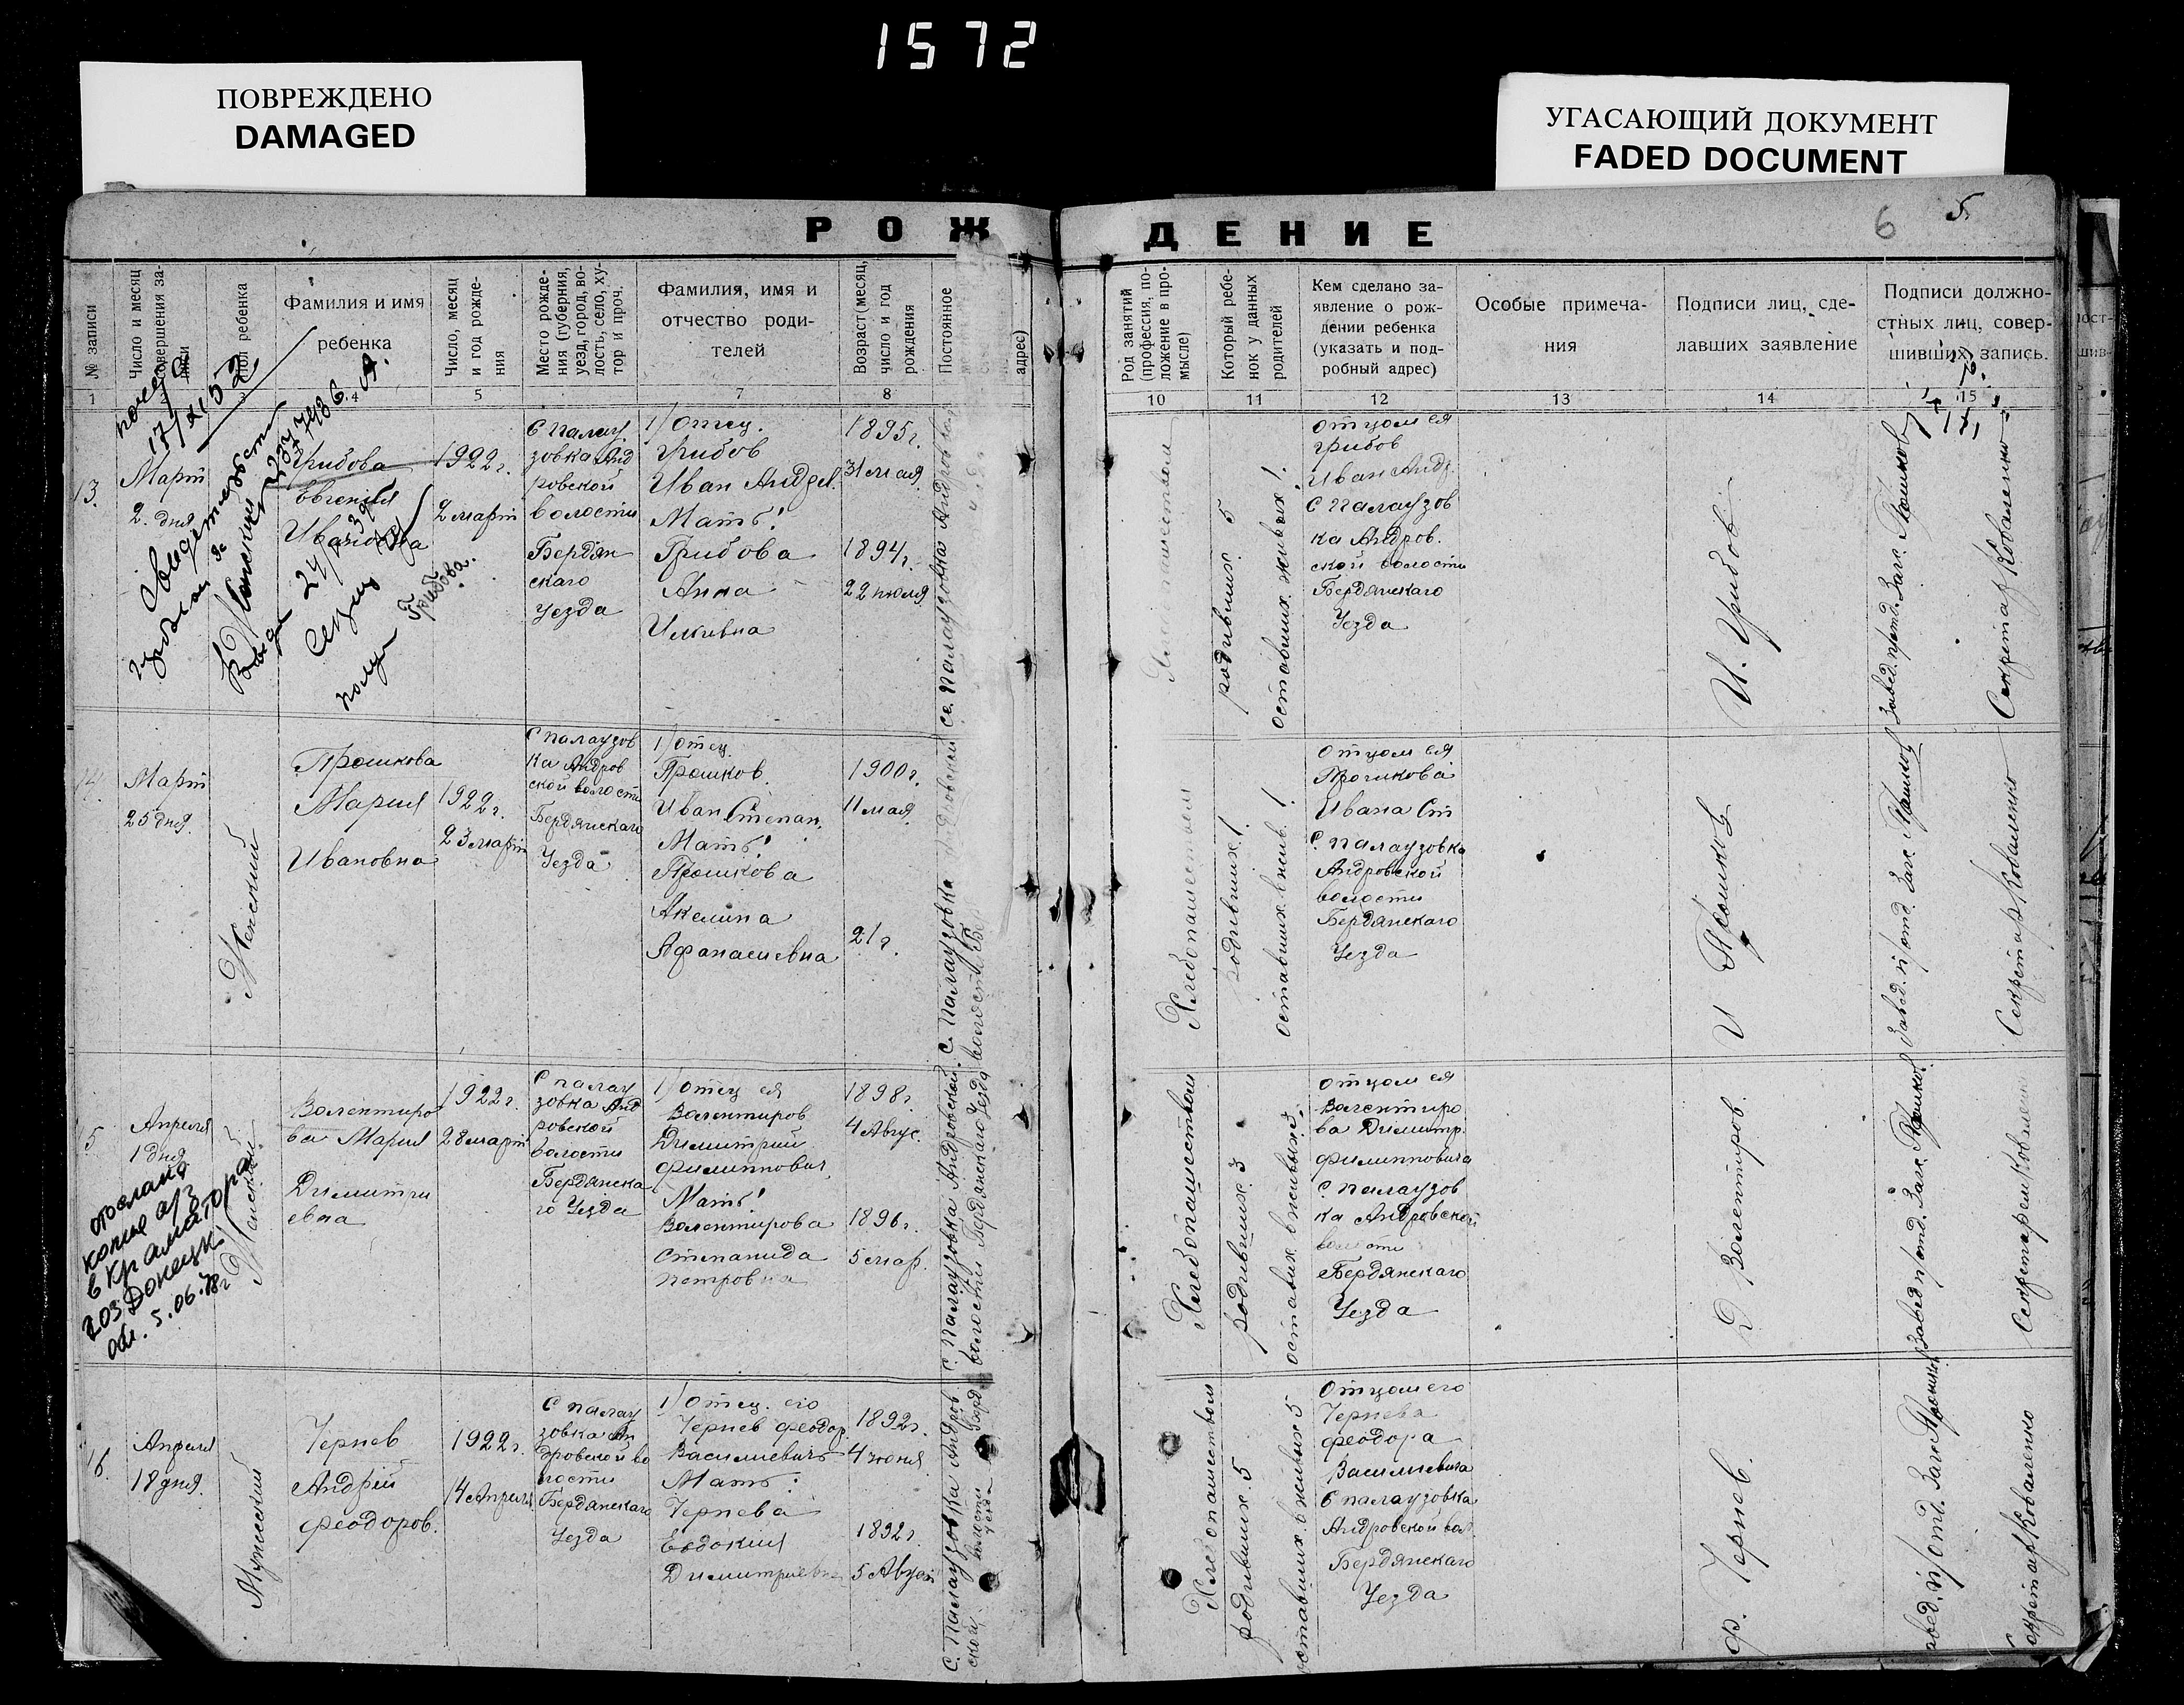 1572
ПОВРЕЖДЕНО
DAMAGED
УГАСАЮЩИЙ ДОКУМЕНТ
FADED DOCUMENT
РОЖДЕНИЕ
6
5
№ записи
Число и месяц совершения записи
Пол ребенка
Фамилия и имя
ребенка
Число, месяц
и год рожде-
ния
Место рожде-
ния (губерния,
уезд, город, во-
лость, село, ху-
тор и проч.
Фамилия, имя и
отчество роди-
телей
Возраст (месяц,
число и год
рождения
Постоянное
адрес)
Род занятий
(профессия, по-
ложение в про-
мысле)
Который ребе-
нок у данных
родителей
Кем сделано за-
явление о рож-
дении ребенка
(указать и под-
робный адрес)
Особые примеча-
ния
Подписи лиц, сде-
лавших заявление
Подписи должно-
стных лиц, совер-
шивших запись.
1
3
4
5
7
8
10
11
12
13
14
15
13
Март
2. дня
Женский
Грибова
Евгения
Ивановна
1922 г.
2 март
С Палау
зовка Анд
ровской
волости
Бердян
скаго
Уезда
1) Отец.
Грибов
Иван Андре.
Мать!
Грибова
Анна
1895 г.
31 мая
1894 г.
22 июля
родивших 5
оставших живых!
отцом ея
Грибов
Иван Андр.
С Палаузов
ка Андров.
ской волости
Бердянскаго
Уезда
И. Грибов
Завед. п/отд. Загс. Прошков
Секретар Коваленко
Грибова.
14
Март
25 дня.
Женский
Прошкова
Мария
Ивановна
1922 г.
23 март
С Палаузов
ка Андров
ской волости
Бердянскаго
Уезда
1) Отец
Прошков.
Иван Степан.
Мать!
Прошкова
Акелина
Афанасиевна
1900 г.
11 мая
21 г.
С. Палаузовка
Хлебопашеством
родивших 1.
оставших вжив. 1
Отцом ея
Прошкова
Ивана Ст
С. Палаузовка
Андровской
волости
Бердянскаго
Уезда
И Прошков
Завед. п/отд. Загс Прошков
Секретар Коваленко
15
Апреля
1 дня
Женский.
Валентиро
ва Мария
Димитри
евна
1922 г.
28 март
С Палау
зовка Анд
ровской
волости
Бердянска
го Уезда
1) Отец ея
Валентиров
Димитрий
Филиппович
Мать!
Валентирова
Степанида
Петровна
1898 г.
4 Авгус.
1896 г.
5 мар.
С. Палаузовка Андровской
волости Бердянскаго Уезда
Хлебопашеством
родивших 3
оставших вживых 3.
отцом ея
Валентиро
ва Димитр.
Филипповича
С Палаузов
ка Андровской
волости
Бердянскаго
Уезда
Д Валентиров.
Завед п/отд. Загс. Прошков
Секретарем Коваленко
отослана
копия а/з
в Краматор
ЗОЗ Донецк.
обл. 5.06.78 г
16.
Апреля
18 дня.
Мужеский
Чернев
Андрій
Феодоров.
1922 г.
14 Апреля
С Палау
зовка Ан
дровской во
лости
Бердянскаго
Уезда
1) Отец. его
Чернев Феодор
Василиевич
Мать:
Чернева
Евдокия
Димитриевна
1892 г.
4 июня
1892 г.
5 Август
С. Палаузовка Андров
ской
волости
Уезда
Хлебопашеством
родивших. 5
оставших. вживых 5
Отцом его
Чернева
Феодора
Василиевича
С Палаузовка
Андровской вол
Бердянскаго
Уезда
Ф. Чернев.
завед. п/отд. Загс Прошков
Секретар Коваленко